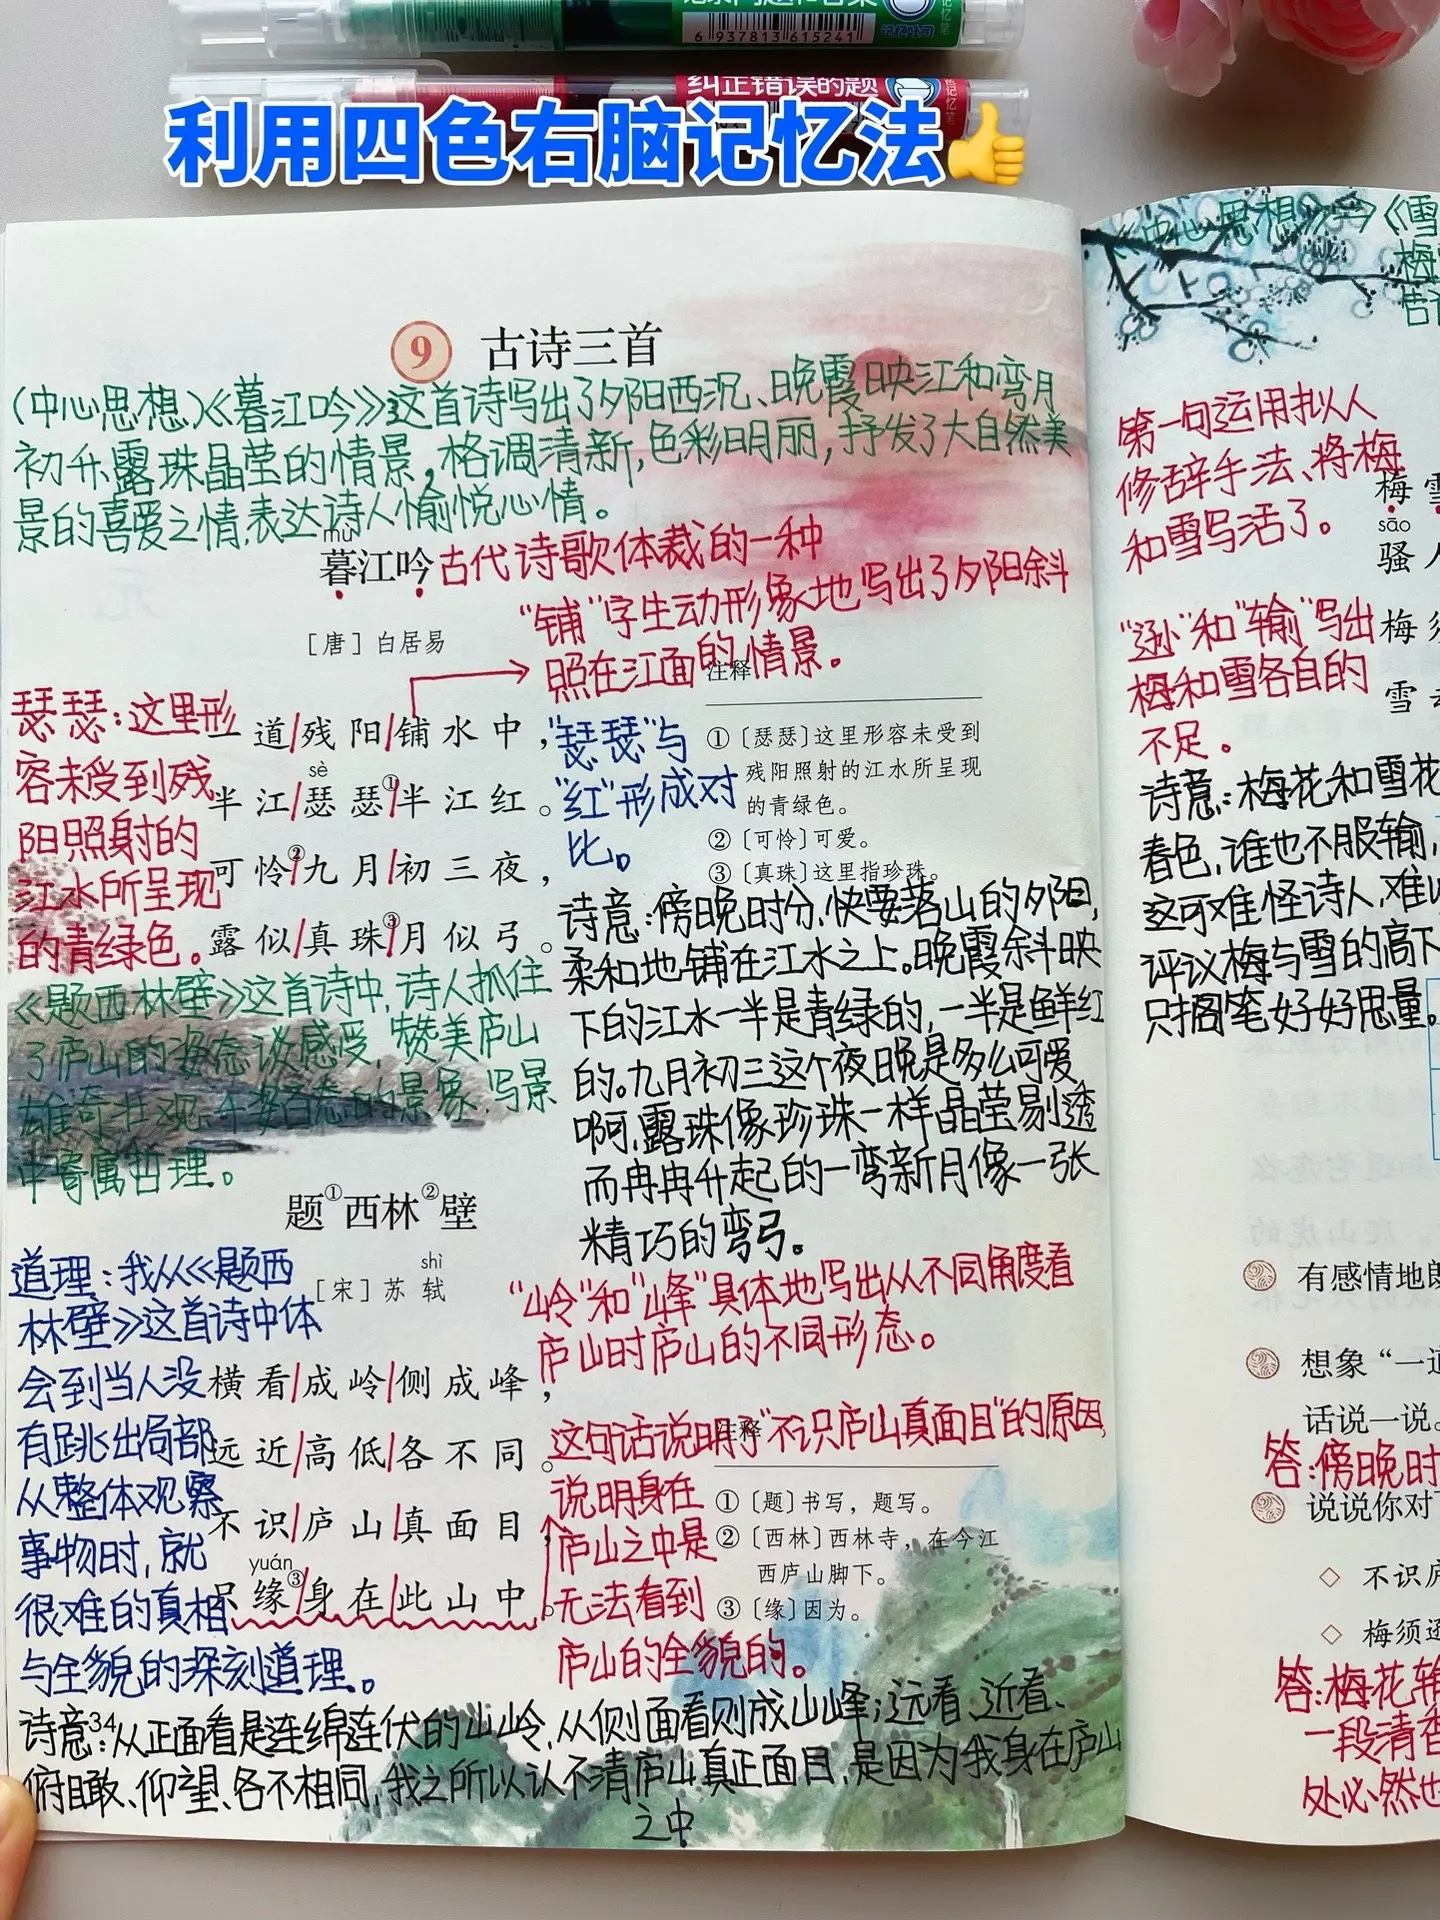 6 937813 615241
纠正错误的题
利用四色右脑记忆法👍
9 古诗三首
(中心思想)《暮江吟》这首诗写出了夕阳西沉、晚霞映江和弯月
初升露珠晶莹的情景,格调清新,色彩明丽,抒发了大自然美
景的喜爱之情,表达诗人愉悦心情。
mù
暮江吟
古代诗歌体裁的一种
“铺”字生动形象地写出了夕阳斜
照在江面的情景。
[唐] 白居易
瑟瑟:这里形
容未受到残
阳照射的
江水所呈现
的青绿色。
一道/残阳/铺水中,
sè
半江/瑟瑟①/半江红。
可怜②/九月/初三夜,
露似/真珠③/月似弓。
“瑟瑟”与
“红”形成对
比。
注释
①〔瑟瑟〕这里形容未受到
残阳照射的江水所呈现
的青绿色。
②〔可怜〕可爱。
③〔真珠〕这里指珍珠。
诗意:傍晚时分,快要落山的夕阳,
柔和地铺在江水之上。晚霞斜映
下的江水一半是青绿的,一半是鲜红
的。九月初三这个夜晚是多么可爱
啊,露珠像珍珠一样晶莹剔透
而冉冉升起的一弯新月像一张
精巧的弯弓。
《题西林壁》这首诗中,诗人抓住
了庐山的姿态谈感受,赞美庐山
雄奇壮观、千姿百态的景象,写景
中寄寓哲理。
题①西林②壁
shì
[宋] 苏轼
道理:我从《题西
林壁》这首诗中体
会到当人没
有跳出局部
从整体观察
事物时,就
很难的真相
与全貌的深刻道理。
“岭”和“峰”具体地写出从不同角度看
庐山时庐山的不同形态。
横看/成岭/侧成峰,
远近/高低/各不同。
不识/庐山/真面目,
yuán
只缘③/身在/此山中。
这句话说明了“不识庐山真面目”的原因,
说明身在
庐山之中是
无法看到
庐山的全貌的。
注释
①〔题〕书写,题写。
②〔西林〕西林寺,在今江
西庐山脚下。
③〔缘〕因为。
诗意:从正面看是连绵连伏的山岭,从侧面看则成山峰;远看、近看、
俯瞰、仰望、各不相同,我之所以认不清庐山真正面目,是因为我身在庐山
之中
34
《中心思想》今《雪
梅
第一句运用拟人
修辞手法、将梅
和雪写活了。
梅雪
sāo
骚人
“逊”和“输”写出
梅和雪各自的
不足。
梅须
雪
诗意:梅花和雪花
春色,谁也不服输,
这可难怪诗人,难以
评议梅与雪的高下
只搁笔好好思量。
有感情地朗
想象“一道
话说一说。
答:傍晚时
说说你对
◇ 不识庐
◇ 梅须逊
答:梅花输
一段清香
处必然也